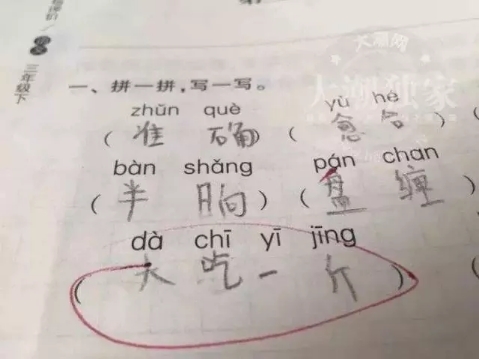 三年级下
一、拼一拼,写一写。
zhǔn què yù hé
( 准 确 ) ( 愈 合
bàn shǎng pán chan
( 半 晌 ) ( 盘 缠
dà chī yī jīng
( 大 吃 一 斤 )